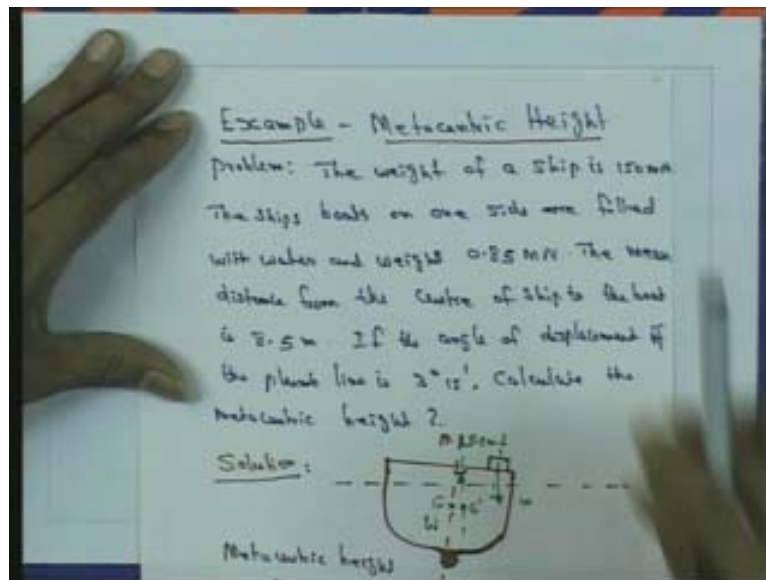 Example - Metacentric Height
Problem: The weight of a ship is 150MN
The ships boats on one side are filled
with water and weight 0.85 MN. The mean
distance from the centre of ship to the boat
is 8.5m. If the angle of displacement of
the plumb line is 2° 15', Calculate the
metacentric height ?
Solution:
G G'
W
Metacentric height